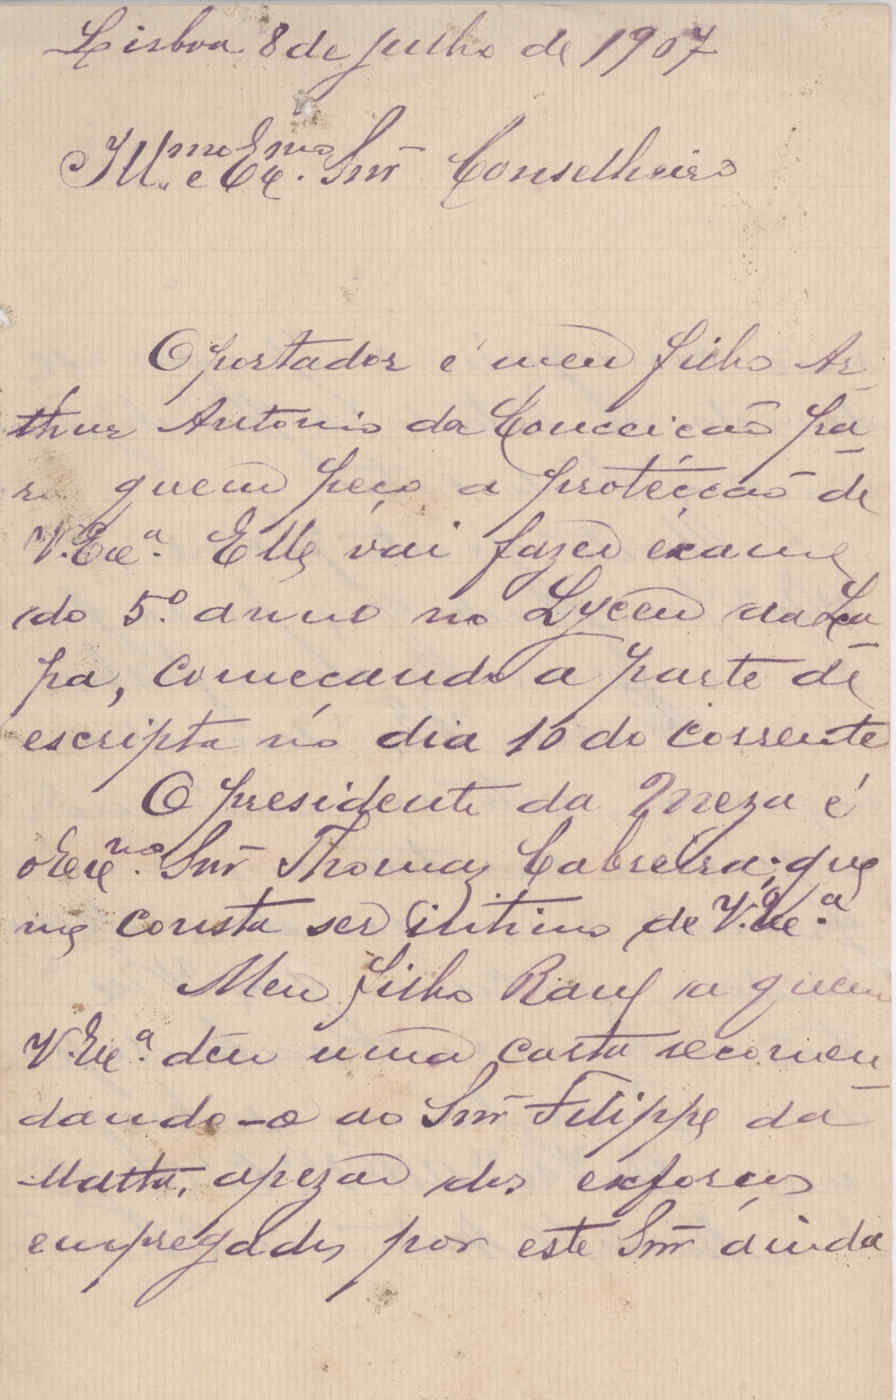 Lisboa 8 de Julho de 1907
Illmo. e Exmo. Snr Conselheiro
O portador é meu filho Ar-
thur Antonio da Conceicão pa-
ra quem peço a protécção de
V. Exa. Elle vai fazer éxame
do 5.º anno no Lyceu da La-
pa, comecando a parte de
escripta no dia 10 do corrente
O presidente da Meza é
o Exmo. Snr Thomaz Cabreira; que
me consta ser intimo de V. Exa.
Meu filho Raul a quem
V. Exa. deu uma carta recomen-
dando-o ao Snr Filippe da
Matta, apezar dos exforcos
empregados por este Snr ainda